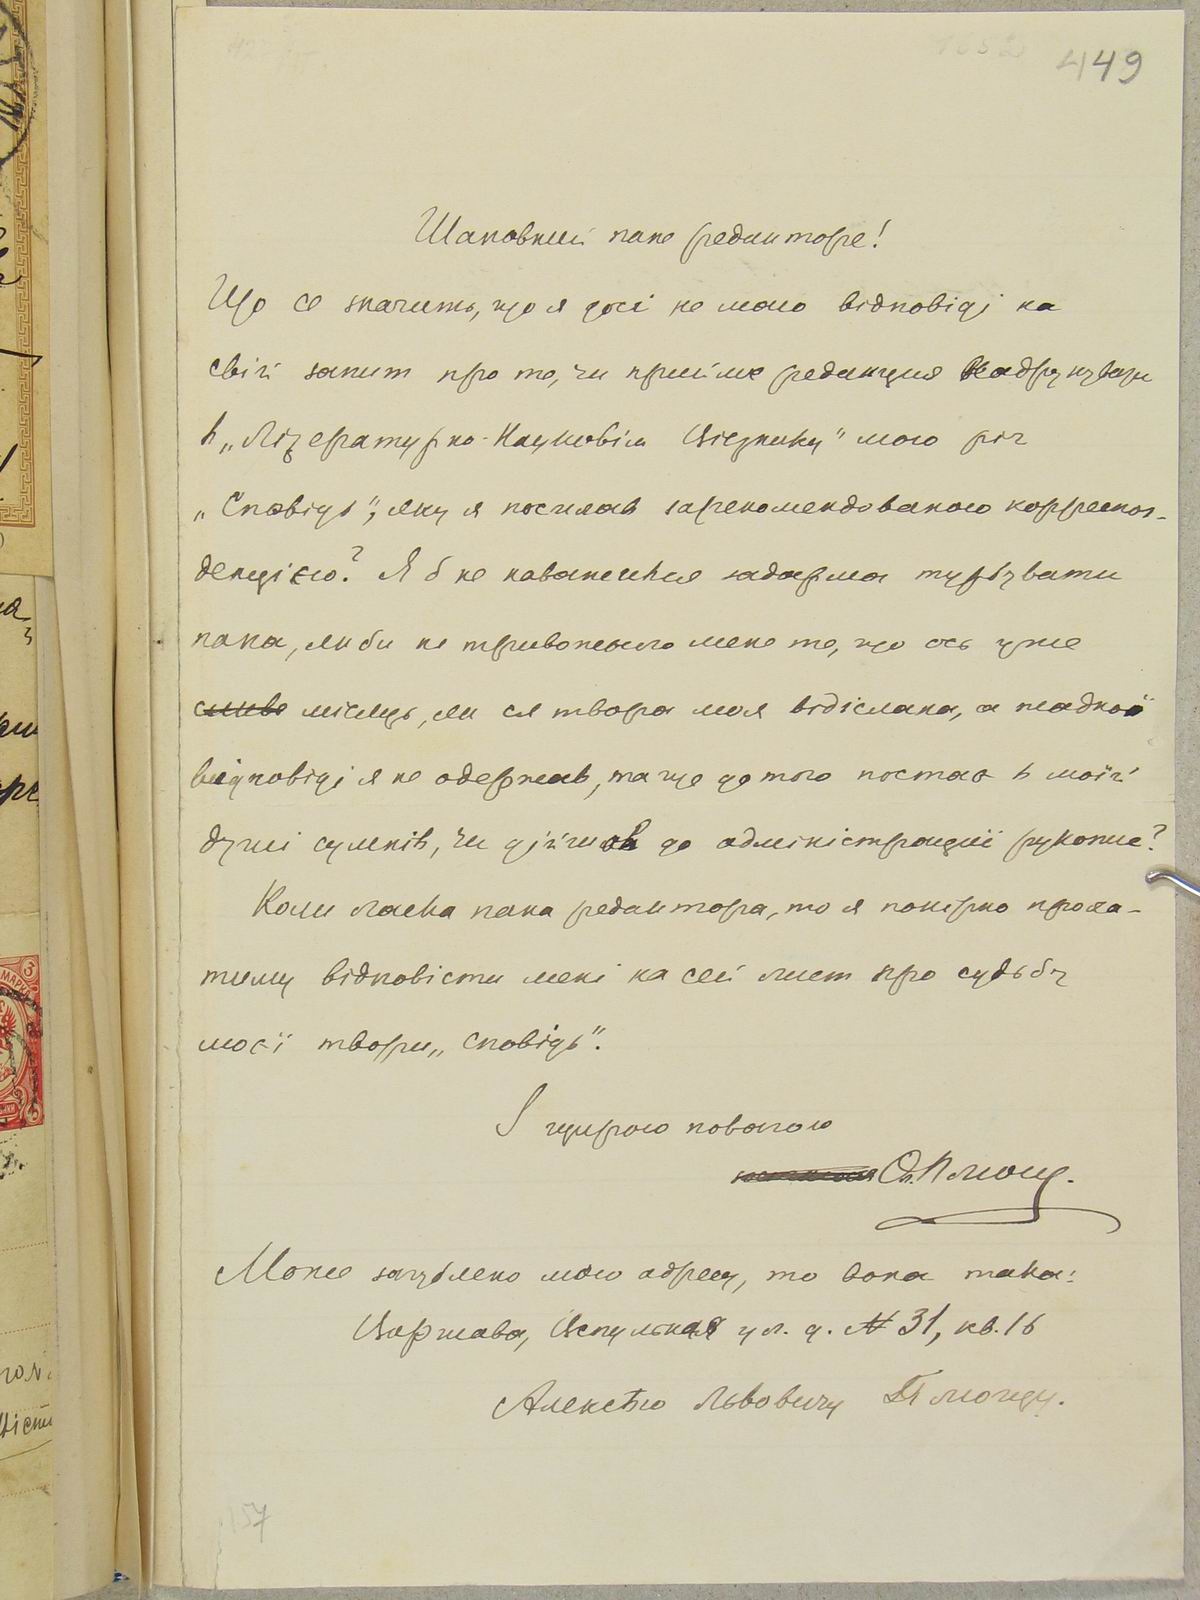 449
Шановний пане редакторе!
Що се значить, що я досі не маю відповіді на
свій запит про те, чи прийме редакция надрукувати
в „Літературно-Науковім Віснику" мою річ
„Сповідь", яку я посилав зарекомендованою корреспон-
денцією? Я б не наважився задарма турбувати
пана, якби не тривожило мене те, що ось уже
місяць, як ся твора моя відіслана, а жадної
відповіді я не одержав, та ще до того постав в моїй
душі сумнів, чи дійшов до адміністрації рукопис?
Коли ласка пана редактора, то я покірно проха-
тиму відповісти мені на сей лист про судьбу
моєї твори „Сповідь".
З щирою повагою
Ол. Плющ.
Може загублено мою адресу, то вона така:
Варшава, Вспульная ул. д. № 31, кв. 16
Алексѣю Львовичу Плющу.
157